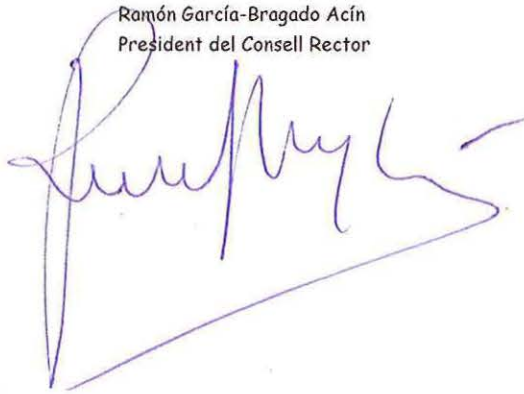 Ramón García-Bragado Acín
President del Consell Rector